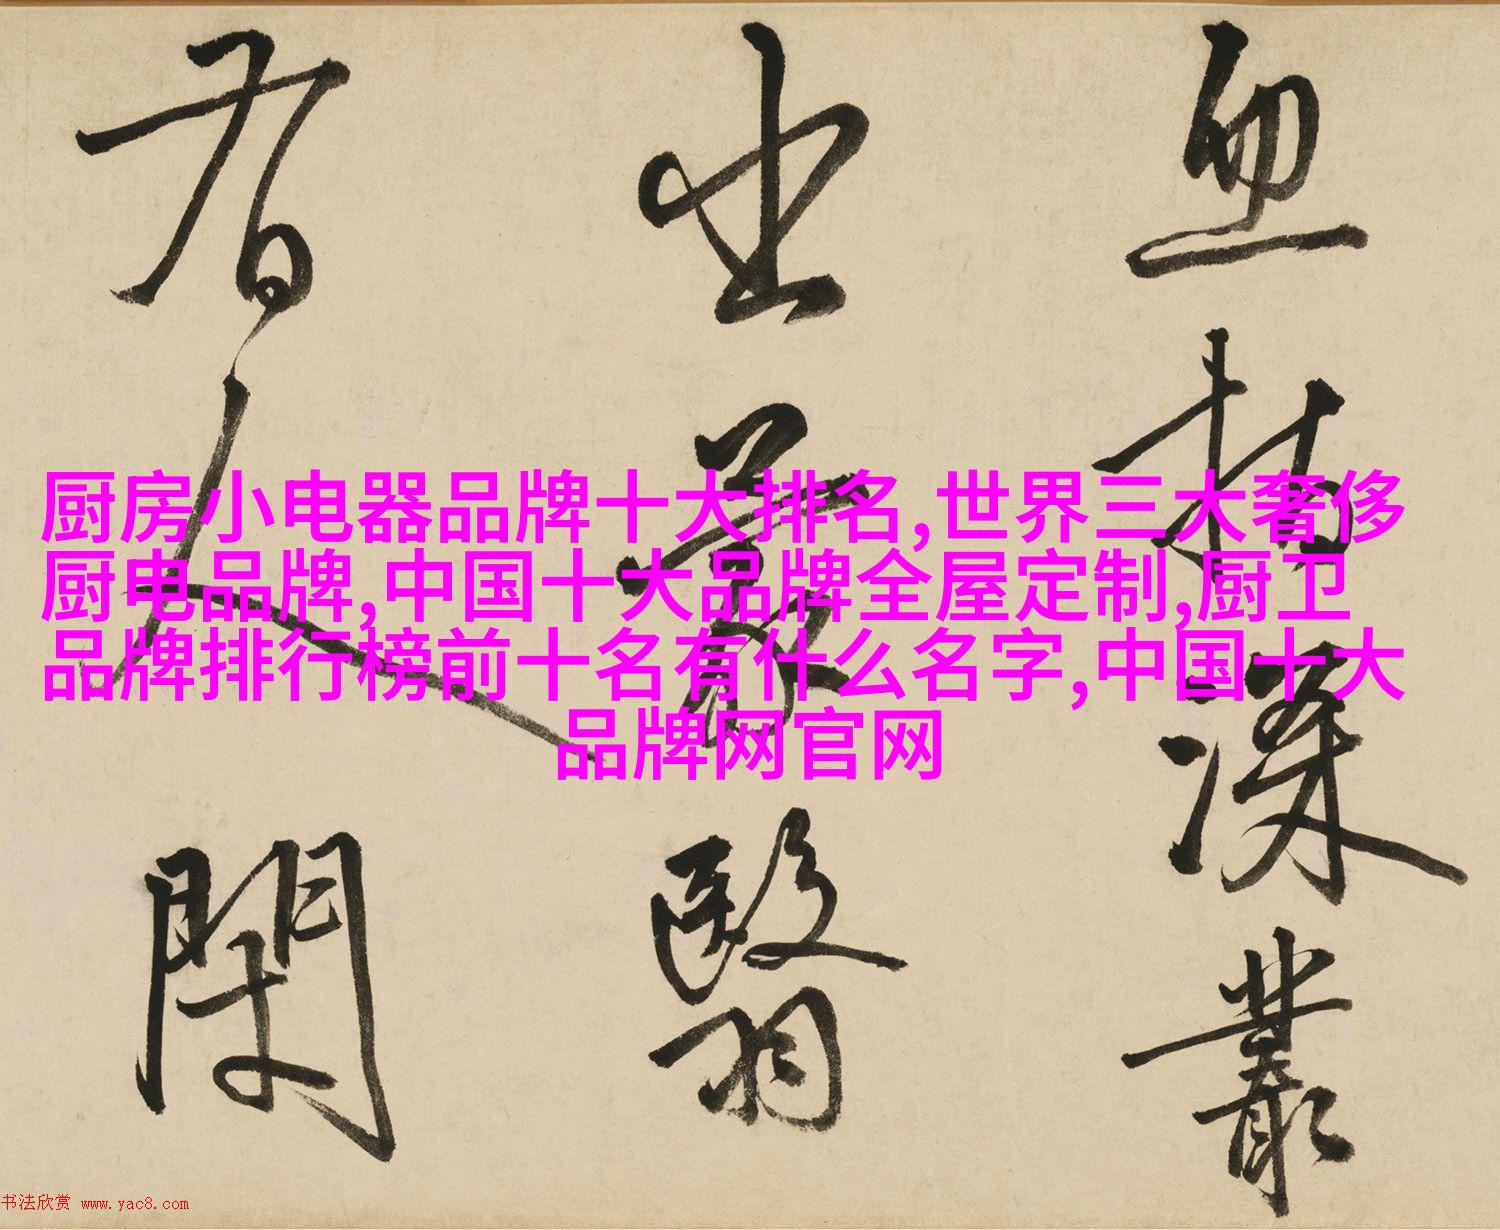 厨房小电器品牌十大排名,世界三大奢侈
厨电品牌,中国十大品牌全屋定制,厨卫
品牌排行榜前十名有什么名字,中国十大
品牌网官网
深叢
出蒙翳
人
书法欣赏 www.yac8.com